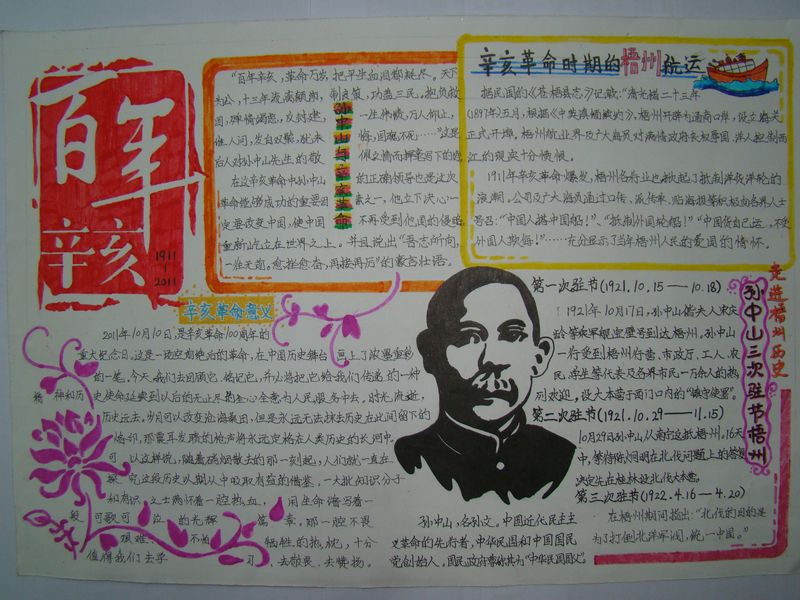 百年
辛亥
1911
2011
“百年辛亥,革命万岁,把平生血泪都耗尽。天下
为公,十三年流离颠沛,
制良策,功盖三民。
一生伟绩,万人仰止,
孙中山与辛亥革命
后人对孙中山先生的敬
在这辛亥革命中孙中山
的正确领导也是这次
革命能够成功的重要因
素之一,他立下决心一
定要改变中国,使中国
不再受到他国的侵略,
重新屹立在世界之上。并且说出“吾志所向,
一往无前。愈挫愈奋,再接再厉”的豪言壮语。
辛亥革命时期的梧州航运
据民国的《苍梧县志》记载:“清光绪二十三年
(1897年)五月,根据《中英滇缅条约》,梧州开辟为通商口岸,设立海关
正式开埠,梧州航业界及广大海员对满清政府丧权辱国、洋人控制西
江的现实十分愤恨。
1911年辛亥革命爆发,梧州各行业也掀起了抵制洋货洋轮的
浪潮。公司及广大海员通过口传、派传单、贴海报等积极向各界人士
号召:“中国人搭中国船!”、“抵制外国轮船!”“中国货自己运,不受
外国人欺侮!”……充分显示了当年梧州人民的爱国的情怀。
辛亥革命意义
2011年10月10日,是辛亥革命100周年的
重大纪念日,这是一场空前绝后的革命,在中国历史舞台
画上了浓墨重彩
的一笔,今天我们去回顾它、铭记它,并必将把它给我们传递的一种
精神和历史使命延续到以后的无止尽
全意为人民服务中去。时光流逝,
历史远去。岁月可以改变沧海桑田,但是永远无法抹去历史在此间留下的
烙印,那震耳发聩的枪声将永远定格在人类历史的长河中。
可以这样说,随着硝烟散去的那一刻起,人们就一直在
探究这段历史以期从中吸取有益的借鉴,一大批知识分子
和有识之士满怀着一腔热血,用生命谱写着一
段可歌可泣的光辉篇章。那一腔不畏
艰难、不怕牺牲的热忱,十分
值得我们去学习、去敬畏、去赞扬。
孙中山,名孙文。中国近代民主主
义革命的先行者,中华民国和中国国民
党创始人。国民政府尊称其为“中华民国国父”
走进梧州历史
孙中山三次驻节梧州
第一次驻节(1921.10.15—10.18)
1921年10月17日,孙中山偕夫人宋庆
龄等乘军舰宝璧号到达梧州。孙中山
一行受到梧州行营、市政厅、工人、农
民、学生等代表及各界市民一万余人的热
烈欢迎,设大本营于南门口内的“镇守使署”。
第二次驻节(1921.10.29—11.15)
10月29日孙中山从南宁返抵梧州。16天
中,等待陈炯明在北伐问题上的答复
决定先在桂林设北伐大本营。
第三次驻节(1922.4.16—4.20)
在梧州期间指出:“北伐的目的是
为了打倒北洋军阀,统一中国。”